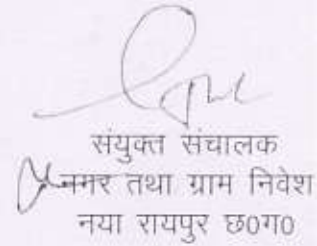 संयुक्त संचालक
नगर तथा ग्राम निवेश
नया रायपुर छ0ग0